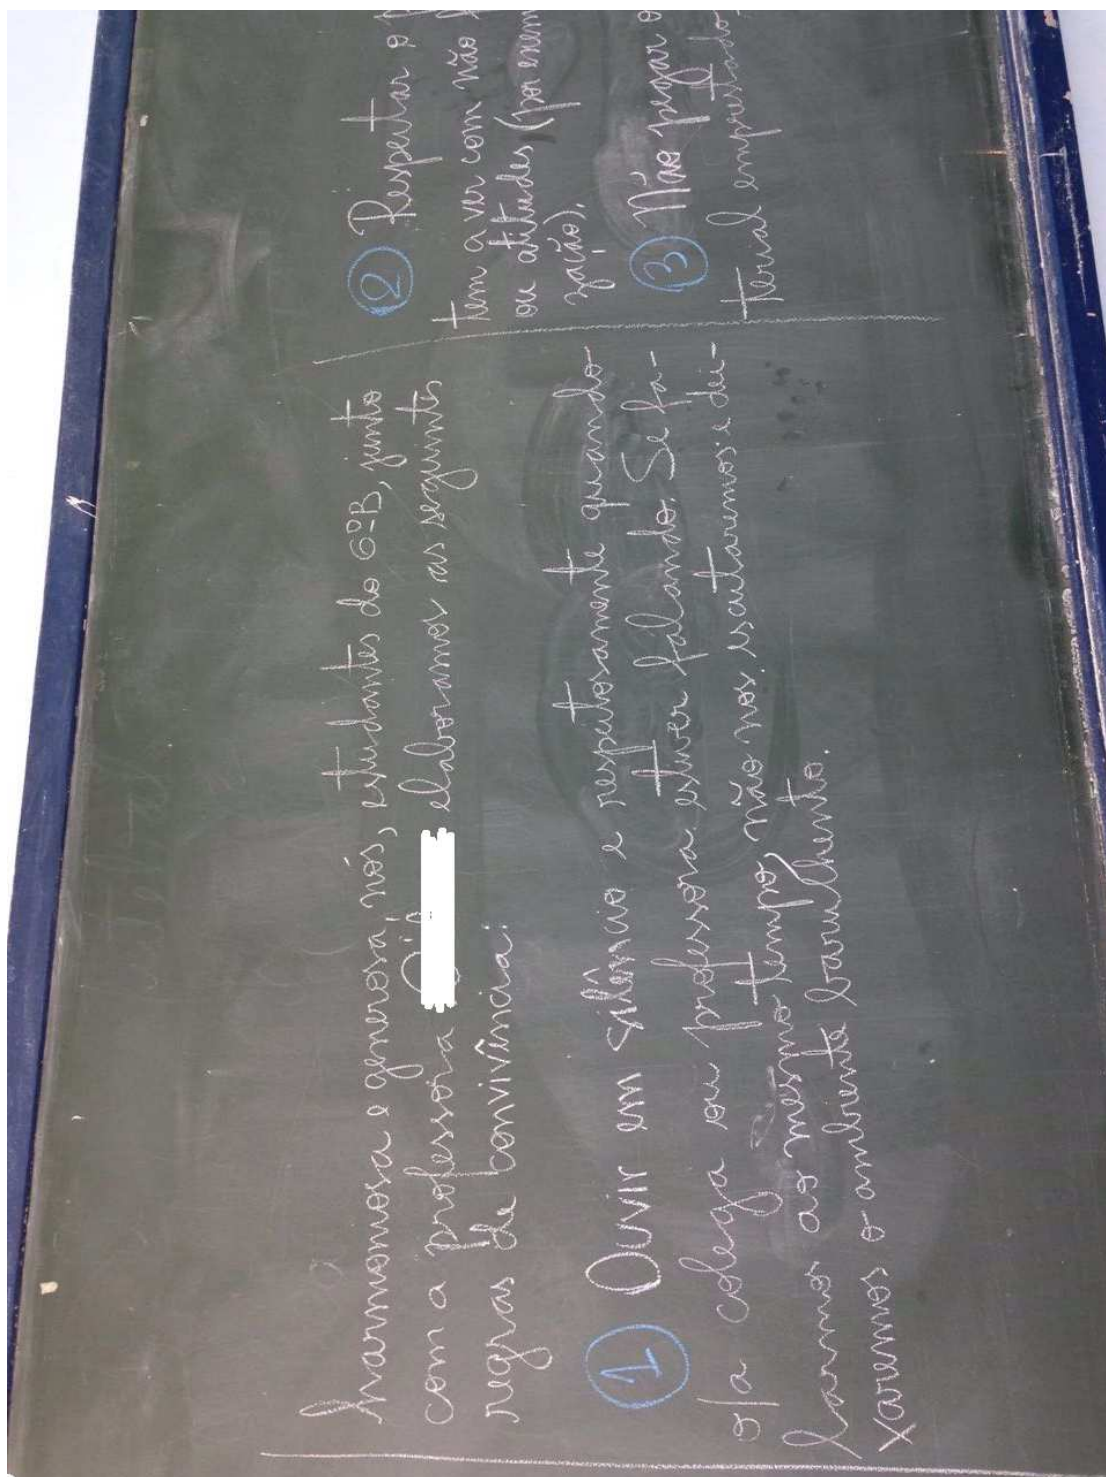 harmoniosa e generosa, nós, estudantes do 6ºB, junto
com a professora elaboramos as seguintes
regras de convivência:
1 Ouvir em silêncio e respeitosamente quando
o/a colega ou professora estiver falando. Se fa-
larmos ao mesmo tempo, não nos escutaremos e dei-
xaremos o ambiente barulhento.
2 Respeitar o
tem a ver com não
ou atitudes (por exem
zação).
3 Não pegar o
terial emprestado